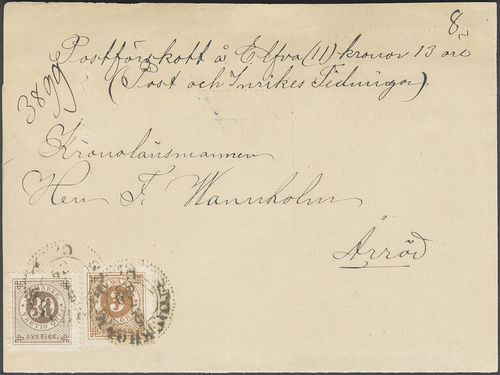 8.
Postförskott å Elfva (11) kronor 13 öre
(Post och Inrikes Tidningar)
3899
Kronolänsmannen
Herr F. Wannholm
Arröd
30
TRETIO
SVERIGE.
3